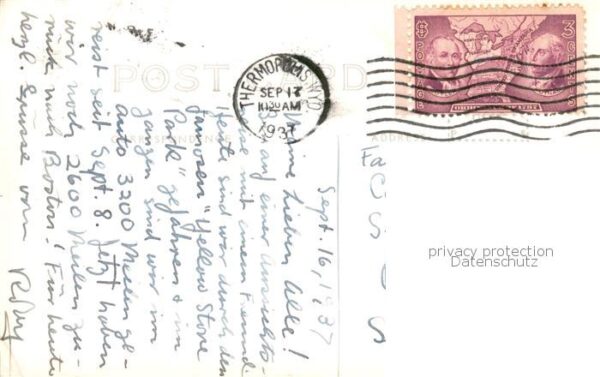 POST CARD
CORRESPONDENCE
ADDRESS
THERMOPOLIS, WYO.
SEP 17
10:30 AM
1937
3
Sept. 16, 1937
Meine lieben Alle!
auf einer Ansichts-
mit einem Freund
Heute sind wir durch den
famosen "Yellow Stone
Park" gefahren & im
ganzen sind wir im
auto 3200 Meilen ge-
reist seit Sept. 8. Jetzt haben
wir noch 2600 Meilen zu-
rück nach Boston! Für heute
herzl. Grüsse vom
privacy protection
Datenschutz